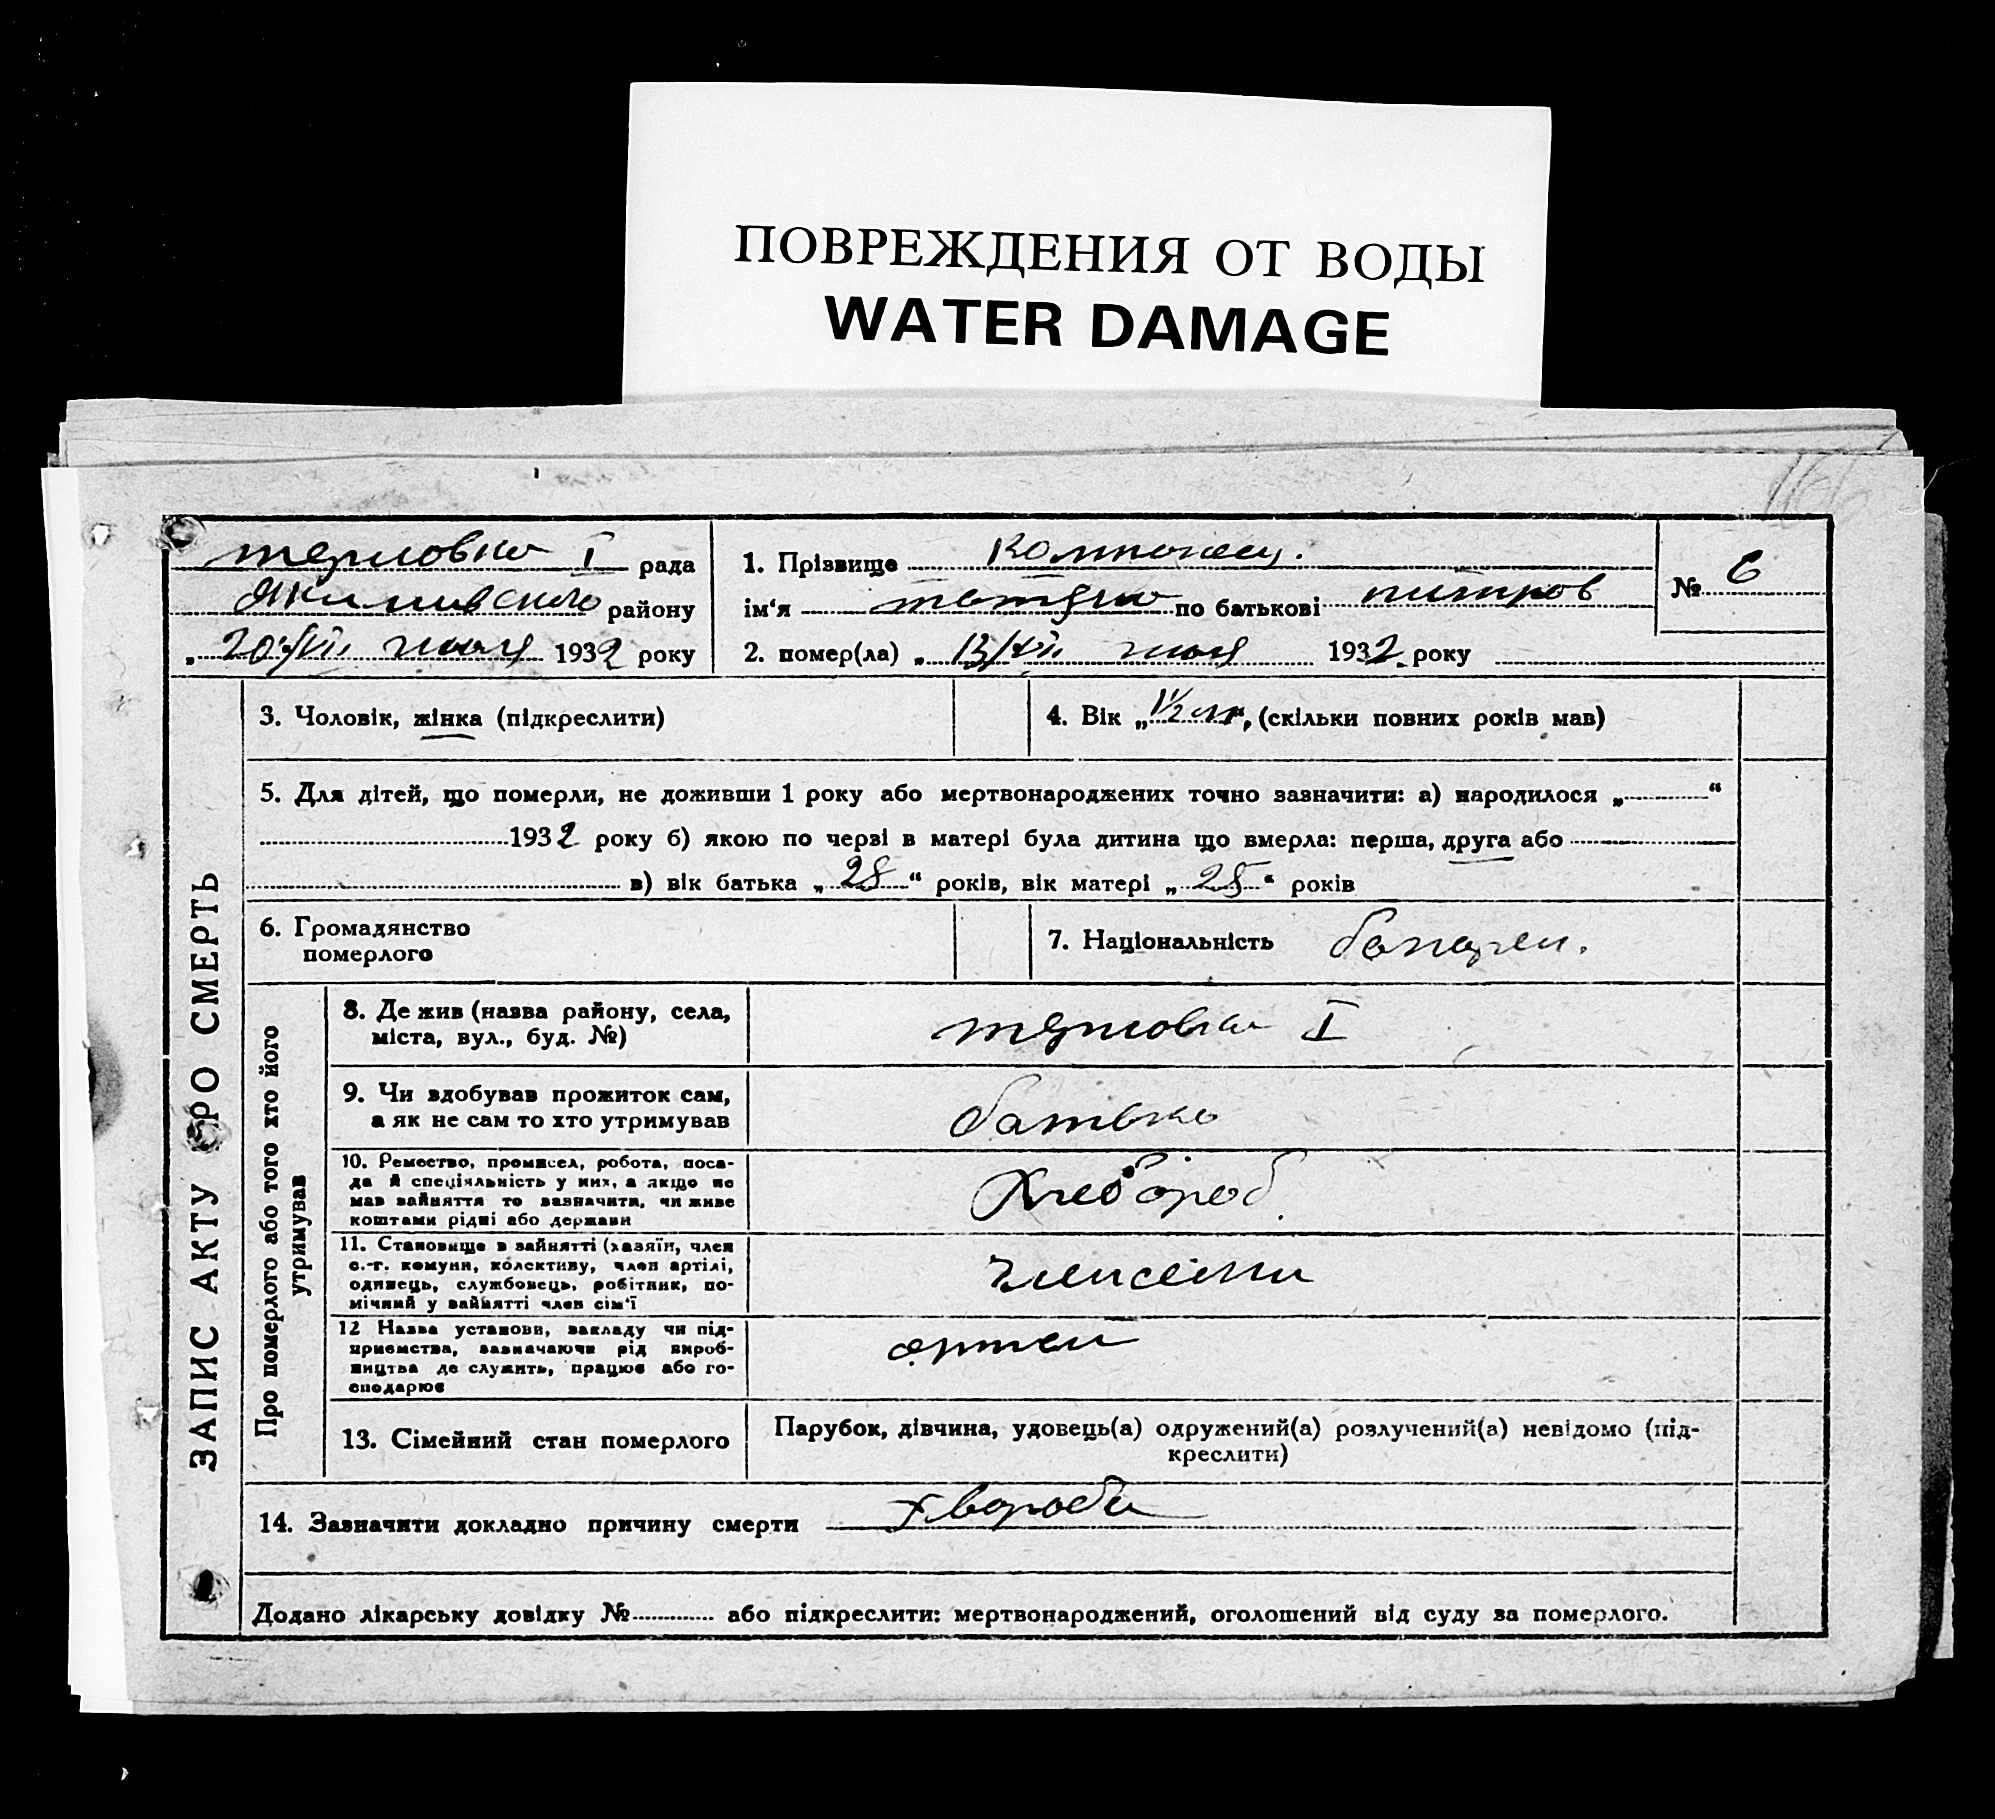 ПОВРЕЖДЕНИЯ ОТ ВОДЫ
WATER DAMAGE
166
ЗАПИС АКТУ ПРО СМЕРТЬ
I рада
району
20/VII июля 1932 року
1. Прізвище
ім'я по батькові
№ 6
2. помер(ла) „ 13/VII июля 1932 року
3. Чоловік, жінка (підкреслити)
4. Вік „1½ “, (скільки повних років мав)
5. Для дітей, що померли, не доживши 1 року або мертвонароджених точно зазначити: а) народилося „ “
1932 року б) якою по черзі в матері була дитина що вмерла: перша, друга або
в) вік батька „ 28 “ років, вік матері „ 25 “ років
6. Громадянство
померлого
7. Національність
Про померлого або того хто його
утримував
8. Де жив (назва району, села,
міста, вул., буд. №)
I
9. Чи здобував прожиток сам,
а як не сам то хто утримував
батько
10. Ремество, промисел, робота, поса-
да й спеціяльність у них, а якщо не
мав зайняття то зазначити, чи живе
коштами рідні або держави
Хлебороб
11. Становище в зайнятті (хазяїн, член
с.-г. комуни, колективу, член артілі,
одинець, службовець, робітник, по-
мічний у зайнятті член сім'ї
12 Назва установи, закладу чи під-
приємства, зазначаючи рід вироб-
ництва де служить, працює або го-
сподарює
артел
13. Сімейний стан померлого
Парубок, дівчина, удовець(а) одружений(а) розлучений(а) невідомо (під-
креслити)
14. Зазначити докладно причину смерти хвороба
Додано лікарську довідку № або підкреслити: мертвонароджений, оголошений від суду за померлого.